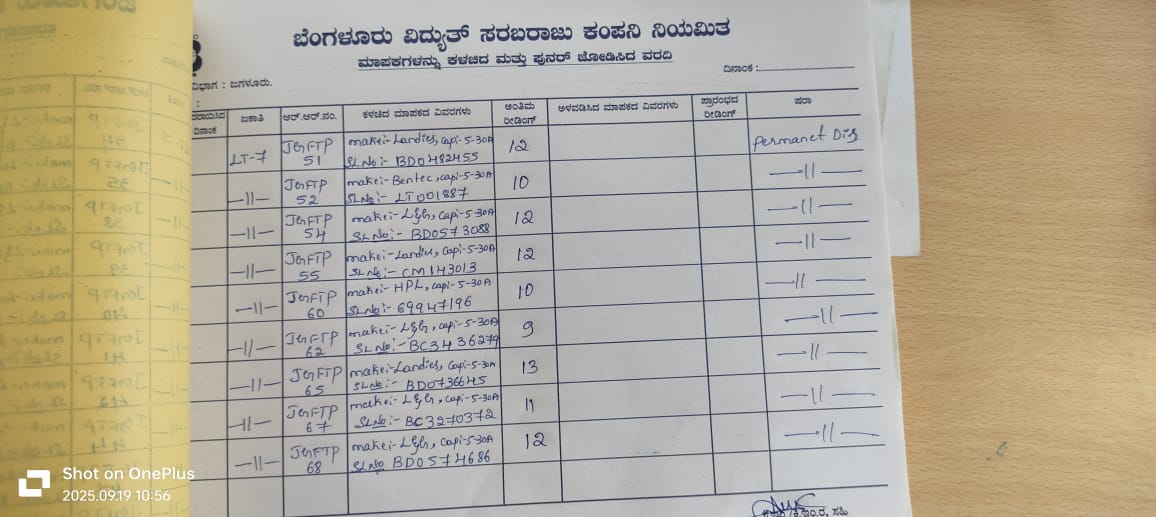 ಬೆಂಗಳೂರು ವಿದ್ಯುತ್ ಸರಬರಾಜು ಕಂಪನಿ ನಿಯಮಿತ
ಮಾಪಕಗಳನ್ನು ಕಳಚಿದ ಮತ್ತು ಪುನರ್ ಜೋಡಿಸಿದ ವರದಿ
ವಿಭಾಗ : ಜಗಳೂರು. ದಿನಾಂಕ :
ದಿನಾಂಕ ಜಕಾತಿ ಆರ್.ಆರ್.ನಂ. ಕಳಚಿದ ಮಾಪಕದ ವಿವರಗಳು ಅಂತಿಮ ರೀಡಿಂಗ್ ಅಳವಡಿಸಿದ ಮಾಪಕದ ವಿವರಗಳು ಪ್ರಾರಂಭದ ರೀಡಿಂಗ್ ಷರಾ
LT-7 JGFTP 51 make:-Landies, Capi-5-30A 12 Permanet Dis
SL No:- BD0482455
-11- JGFTP 52 make:- Bentec, Capi-5-30A 10 -11-
SL No:- LT001887
-11- JGFTP 54 make:- L&G, Capi-5-30A 12 -11-
SL No:- BD0573088
-11- JGFTP 55 make:-Landies, Capi-5-30A 12 -11-
SL No:- CM143013
-11- JGFTP 60 make:- HPL, Capi-5-30A 10 -11-
SL No:- 69947196
-11- JGFTP 62 make:- L&G, Capi-5-30A 9 -11-
SL No:- BC3436279
-11- JGFTP 65 make:-Landies, Capi-5-30A 13 -11-
SL No:- BD0736645
-11- JGFTP 67 make:- L&G, Capi-5-30A 11 -11-
SL No:- BC3270372
-11- JGFTP 68 make:- L&G, Capi-5-30A 12 -11-
SL No BD0574686
ಸಹಿ
Shot on OnePlus
2025.09.19 10:56